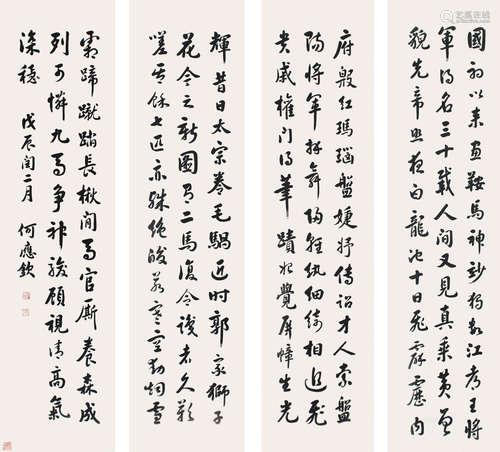 國初以來畫鞍馬神妙獨數江都王將
軍得名三十載人間又見真乘黃曾
貌先帝照夜白龍池十日飛霹靂內
府殷紅瑪瑙盤婕妤傳詔才人索盤
賜將軍拜舞歸輕紈細綺相追飛
貴戚權門得筆蹟始覺屏幛生光
輝昔日太宗拳毛騧近时郭家獅子
花今之新圖有二馬復令識者久歎
嗟其餘七匹亦殊絕迥若寒空動烟雪
霜蹄蹴蹋長楸間馬官厮養森成
列可憐九馬爭神駿顧視清高氣
深穩 戊辰閏二月 何應欽